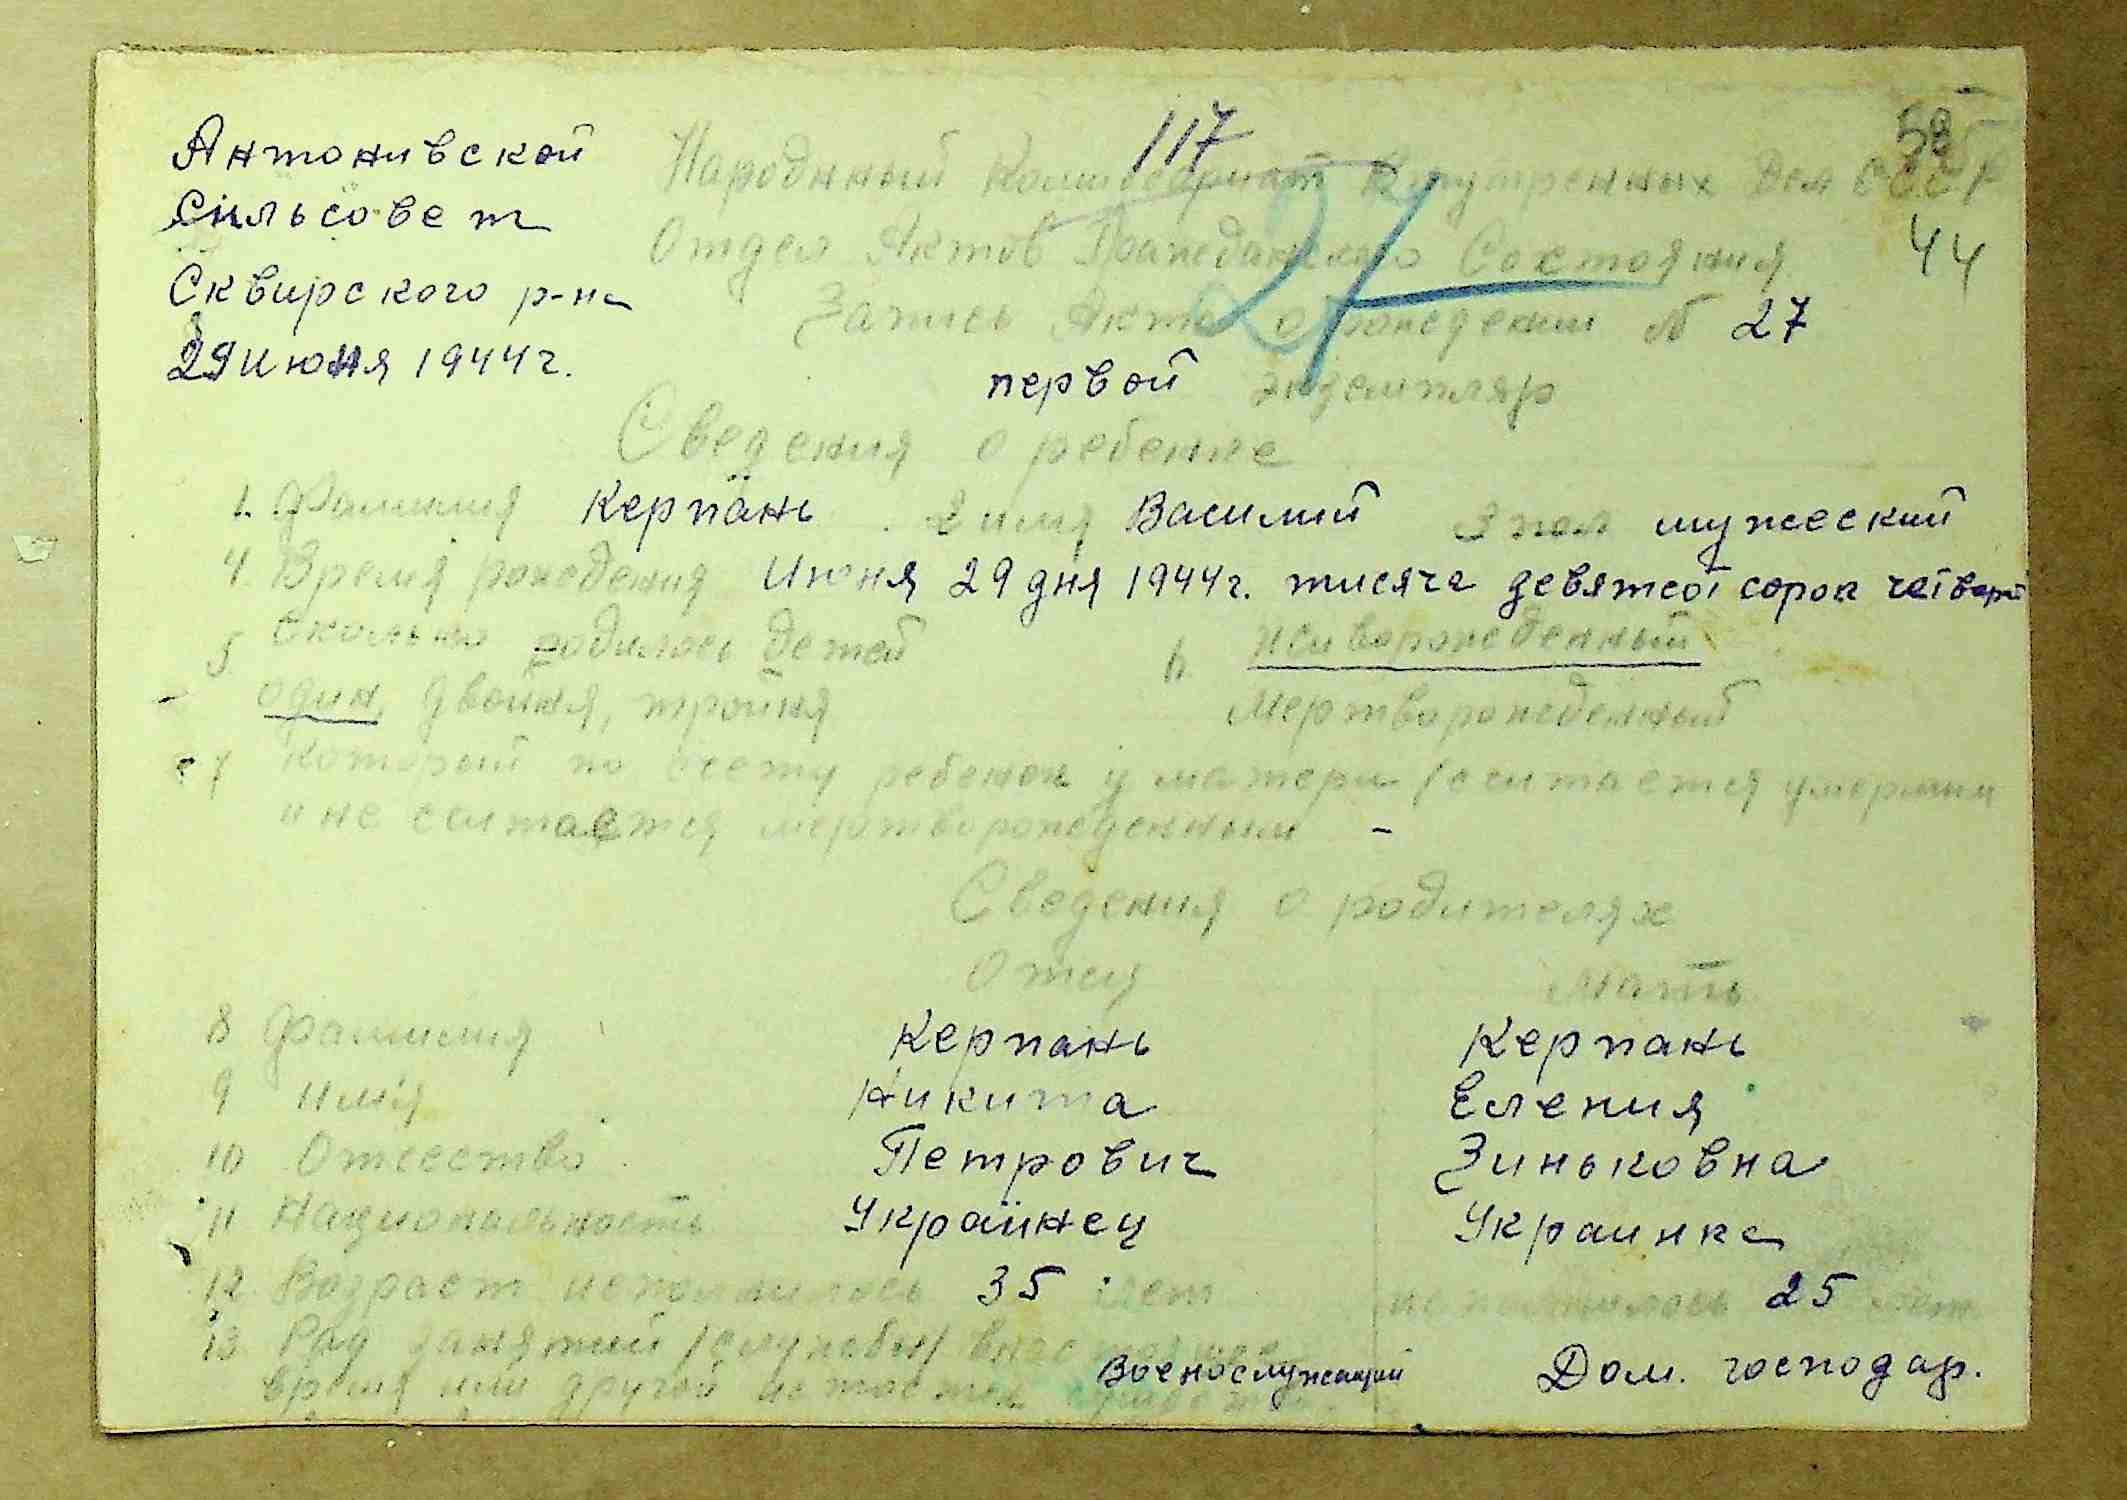 117
58
44
27
Антонивской
Сильсовет
Сквирского р-на
29 Июня 1944 г.
Народнный Комиссариат Внутренных Дел СССР
Отдел Актов Гражданского Состояния
Запись Акта о рождении № 27
первой экземпляр
Сведения о ребенке
1. Фамилия Керпань 2 имя Василий 3 пол мужеский
4. Время рождения Июня 29 дня 1944 г. тисяча девятсот сорок четверт
5 Сколько родилось детей 6. живорожденный
один, двойня, тройня мертворожденный
7 который по счету ребенок у матери (считается умершим
и не считается мертворожденным -
Сведения о родителях
Отец Мать
8 Фамилия Керпань Керпань
9 имя Никита Еления
10 Отчество Петрович Зиньковна
11 Национальность Украинец Украинка
12. Возраст исполнилось 35 лет исполнилось 25 лет
13. Род занятий (службы)
время или другой Военослужащий Дом. господар.